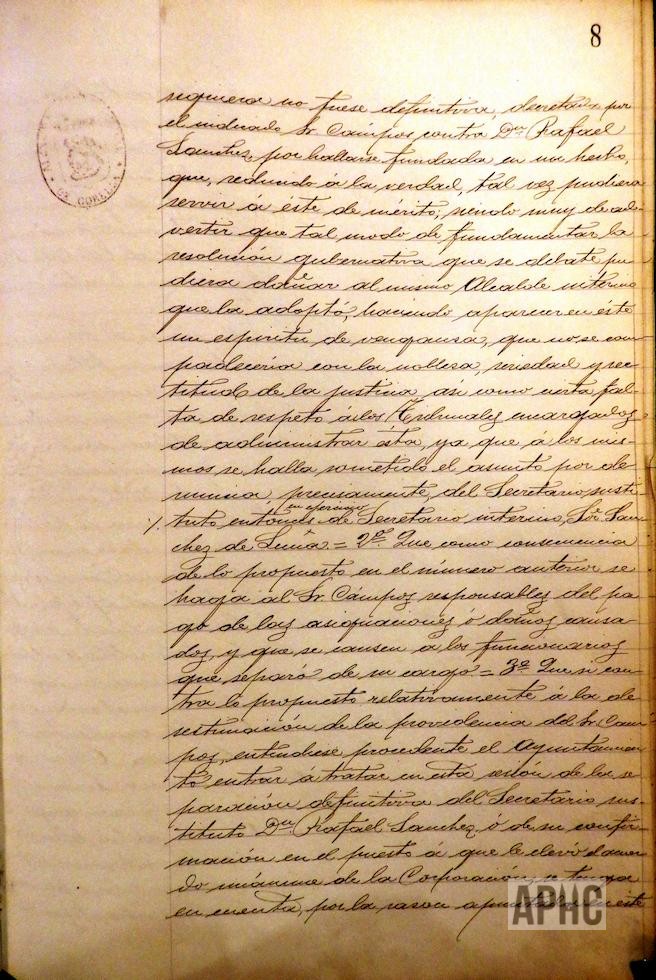 8
siquiera no fuese definitiva, decretada por
el indicado Sr. Cámpos contra Dn. Rafael
Sanchez, por hallarse fundada en un hecho,
que, redundo á la verdad, tal vez pudiera
servir á éste de mérito; siendo muy de ad-
vertir que tal modo de fundamentar la
resolución gubernativa que se debate pu-
diera dañar al mismo Alcalde interino
que la adoptó, haciendo aparecer en éste
un espiritu de venganza, que no se com-
padeceria con la nobleza, seriedad y rec-
titud de la justicia, asi como cierta fal-
ta de respeto á los Tribunales encargados
de administrar ésta, ya que á los mis-
mos se halla sometido el asunto por de-
nuncia, precisamente, del Secretario susti-
tuto entonces en ejercicio de Secretario interino, Sor. San-
chez de Lu = 2º. Que como consecuencia
de lo propuesto en el número anterior se
haga al Sr. Cámpos responsable del pa-
go de las asignaciones ó daños causa-
dos, y que se causen á los funcionarios
que separó de su cargo = 3º Que si con-
tra lo propuesto relativamente á la de-
sestimación de la providencia del Sr. Cam-
pos, entendiese procedente el Ayuntamien-
to entrar á tratar en esta sesión de la se-
paración definitiva del Secretario sus-
tituto Dn. Rafael Sanchez ó de su confir-
mación en el puesto á que le elevó el acuer-
do unánime de la Corporación, se tenga
en cuenta, por la razon apuntada en éste
APHC